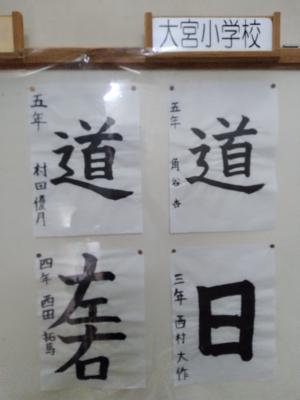 大宮小学校
道
五年
角谷杏
道
五年
村田優月
日
三年 西村大作
左右
四年 西田拓馬